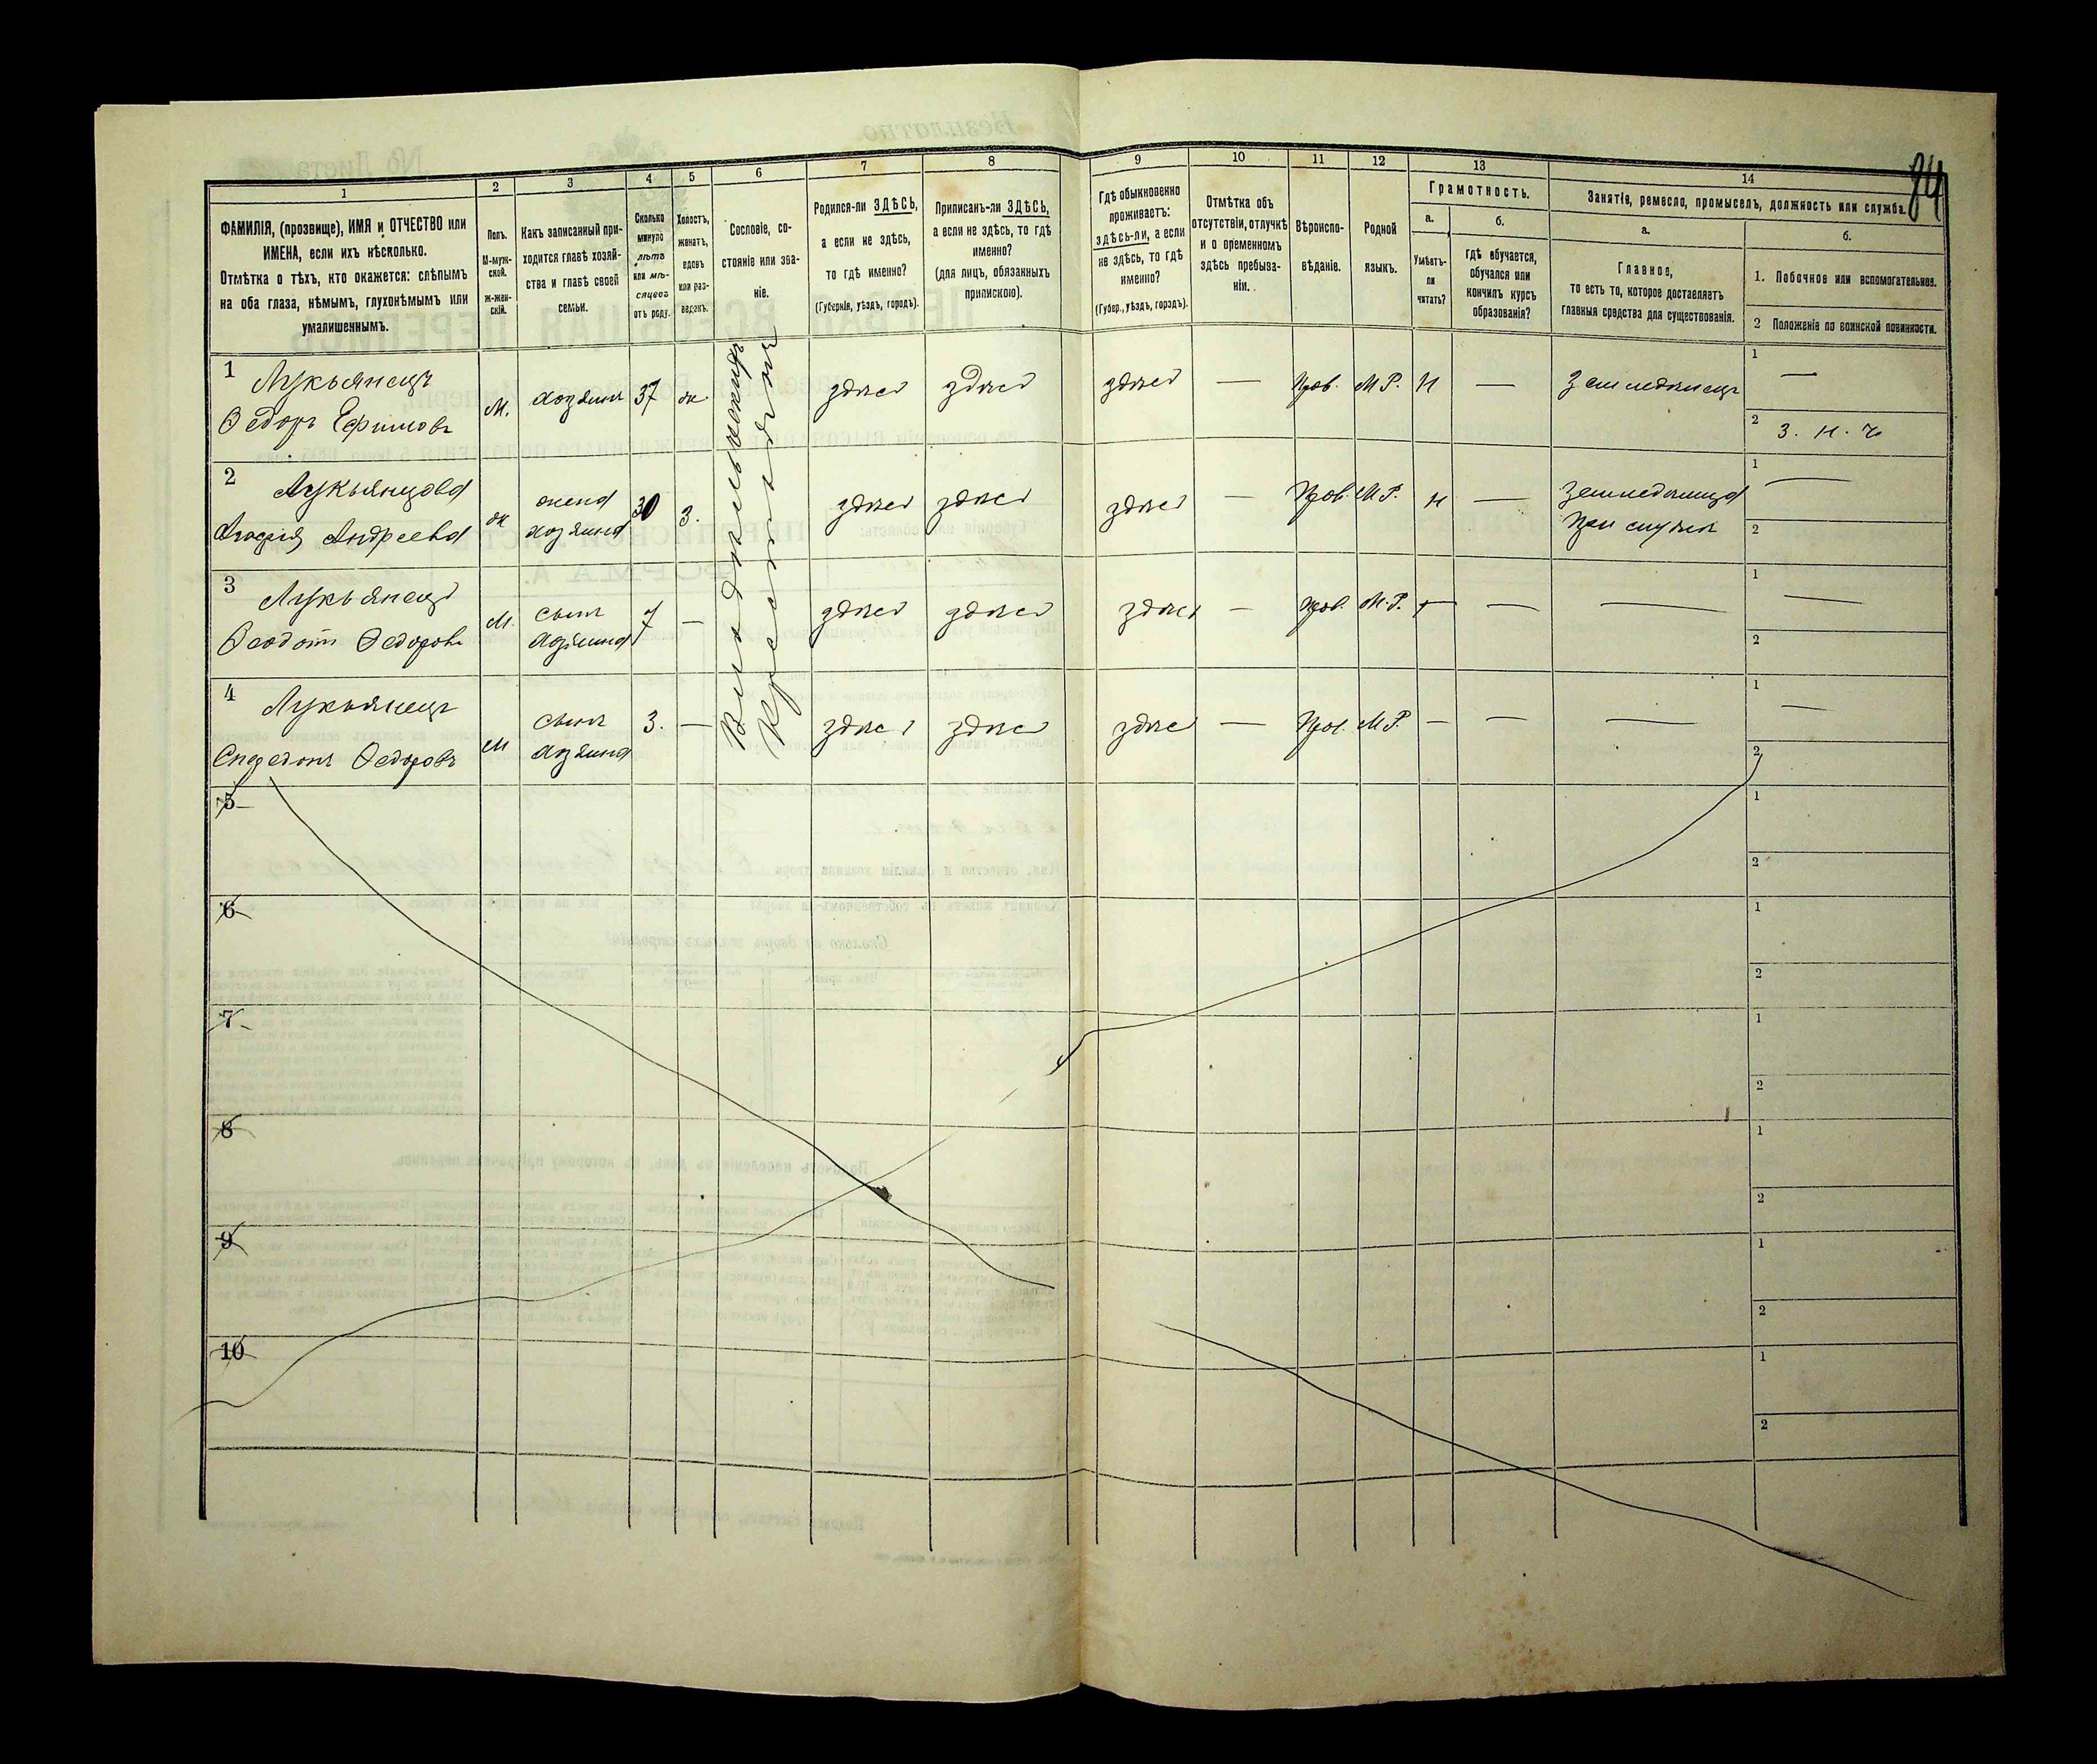 84
1 2 3 4 5 6 7 8 9 10 11 12 13 14
ФАМИЛІЯ, (прозвище), ИМЯ и ОТЧЕСТВО или
ИМЕНА, если ихъ нѣсколько.
Отмѣтка о тѣхъ, кто окажется: слѣпымъ
на оба глаза, нѣмымъ, глухонѣмымъ или
умалишеннымъ.
Полъ.
М-муж-
ской.
ж-жен-
скій.
Какъ записанный при-
ходится главѣ хозяй-
ства и главѣ своей
семьи.
Сколько
минуло
лѣтъ
или мѣ-
сяцевъ
отъ роду.
Холостъ,
женатъ,
вдовъ
или раз-
веденъ.
Сословіе, со-
стояніе или зва-
ніе.
Родился-ли ЗДѢСЬ,
а если не здѣсь,
то гдѣ именно?
(Губернія, уѣздъ, городъ).
Приписанъ-ли ЗДѢСЬ,
а если не здѣсь, то гдѣ
именно?
(для лицъ, обязанныхъ
припискою).
Гдѣ обыкновенно
проживаетъ:
здѣсь-ли, а если
не здѣсь, то гдѣ
именно?
(Губер., уѣздъ, городъ).
Отмѣтка объ
отсутствіи, отлучкѣ
и о временномъ
здѣсь пребыва-
ніи.
Вѣроиспо-
вѣданіе.
Родной
языкъ.
Грамотность.
а.
Умѣетъ-
ли
читать?
б.
гдѣ обучается,
обучался или
кончилъ курсъ
образованія?
Занятіе, ремесло, промыселъ, должность или служба.
а.
Главное,
то есть то, которое доставляетъ
главныя средства для существованія.
б.
1. Побочное или вспомогательное.
2 Положеніе по воинской повинности.
1 Лукьянецъ
Ѳедоръ Ефимовъ
М. хозяинъ 37 ж. здѣсь здѣсь здѣсь — Прав. М Р. Н — Земледѣлецъ 1 —
2 З. Н. Ч.
Крестьянинъ
2 Лукьянцова
Андреева
ж жена
хозяина
30 З. здѣсь здѣсь здѣсь — Прав. М Р. Н — Земледѣлица
При мужѣ
1 —
2
3 Лукьянецъ
Ѳеодотъ Ѳедоровъ
М. сынъ
хозяина
7 — здѣсь здѣсь здѣсь — Прав. М. Р. — — — 1 —
2
4 Лукьянецъ
Ѳедоровъ
М сынъ
хозяина
3. — здѣсь здѣсь здѣсь — Прав. М Р. — — — 1 —
2
5 1
2
6 1
2
7 1
2
8 1
2
9 1
2
10 1
2